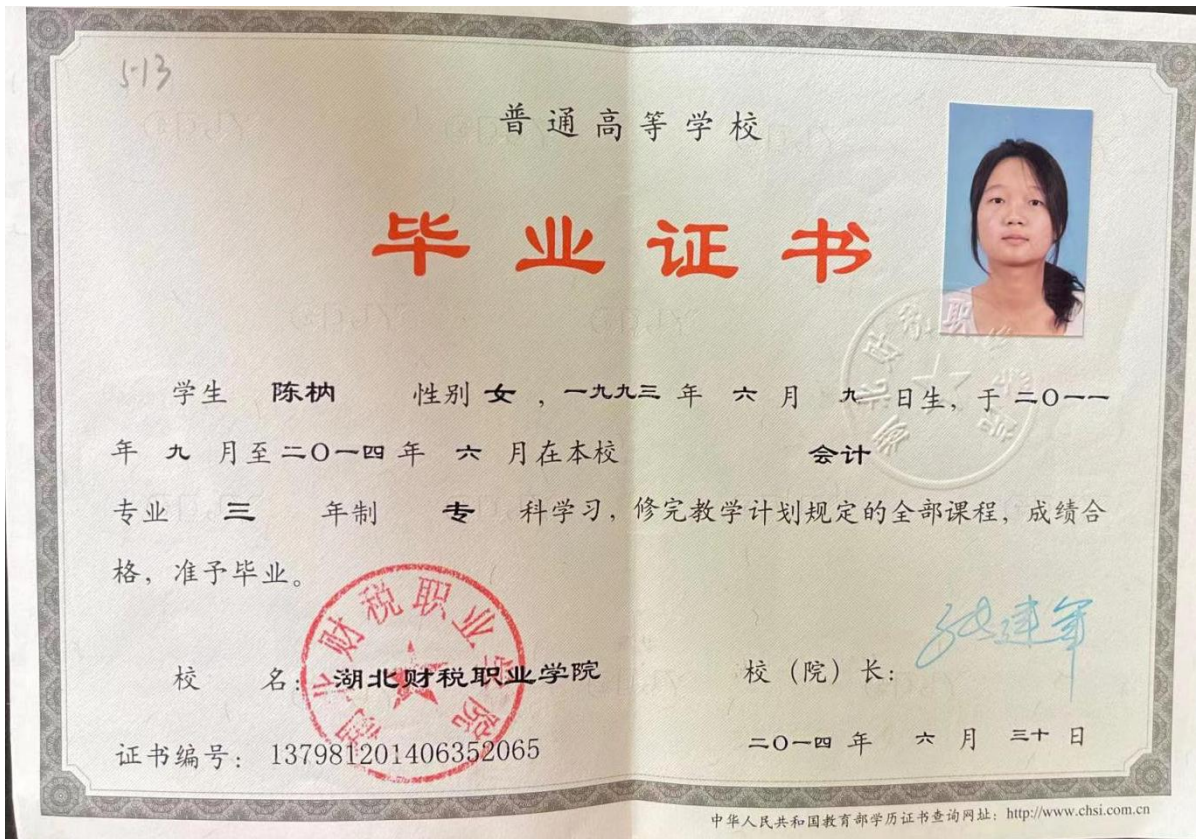 5-13
普通高等学校
毕业证书
学生 陈枘 性别 女 ，一九九三 年 六 月 九 日生，于 二〇一一
年 九 月至 二〇一四 年 六 月在本校 会计
专业 三 年制 专 科学习，修完教学计划规定的全部课程，成绩合
格，准予毕业。
湖北财税职业学院
校 名：湖北财税职业学院
校（院）长：
证书编号：137981201406352065
二〇一四 年 六 月 三十 日
中华人民共和国教育部学历证书查询网址：http://www.chsi.com.cn